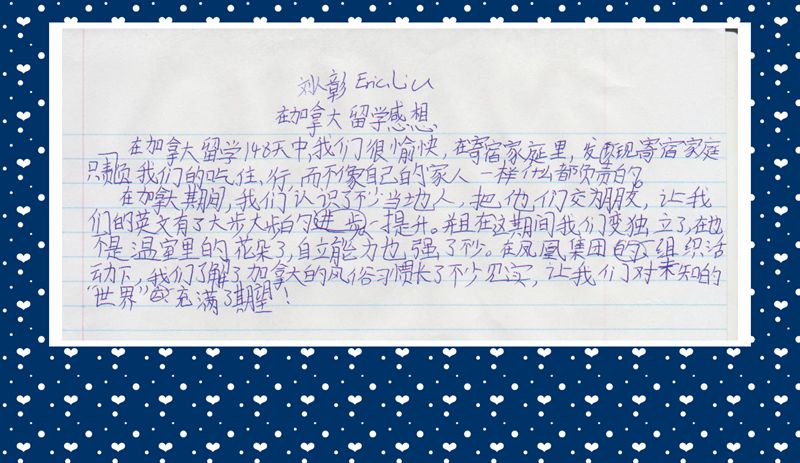 刘人彰 Eric Liu
在加拿大留学感想
在加拿大留学148天中,我们很愉快,在寄宿家庭里,发现寄宿家庭
只负责我们的吃住、行,而不像自己的家人一样什么都负责的。
在加拿大期间,我们认识了不少当地人,把他们交为朋友,让我
们的英文有了大步大步的进步提升。并且在这期间我们变独立了,在也
不是温室里的花朵了,自立能力也强了秒。在凤凰集团的组织活
动下,我们了解了加拿大的风俗习惯长了不少见识,让我们对未知的
“世界”充满了期望!